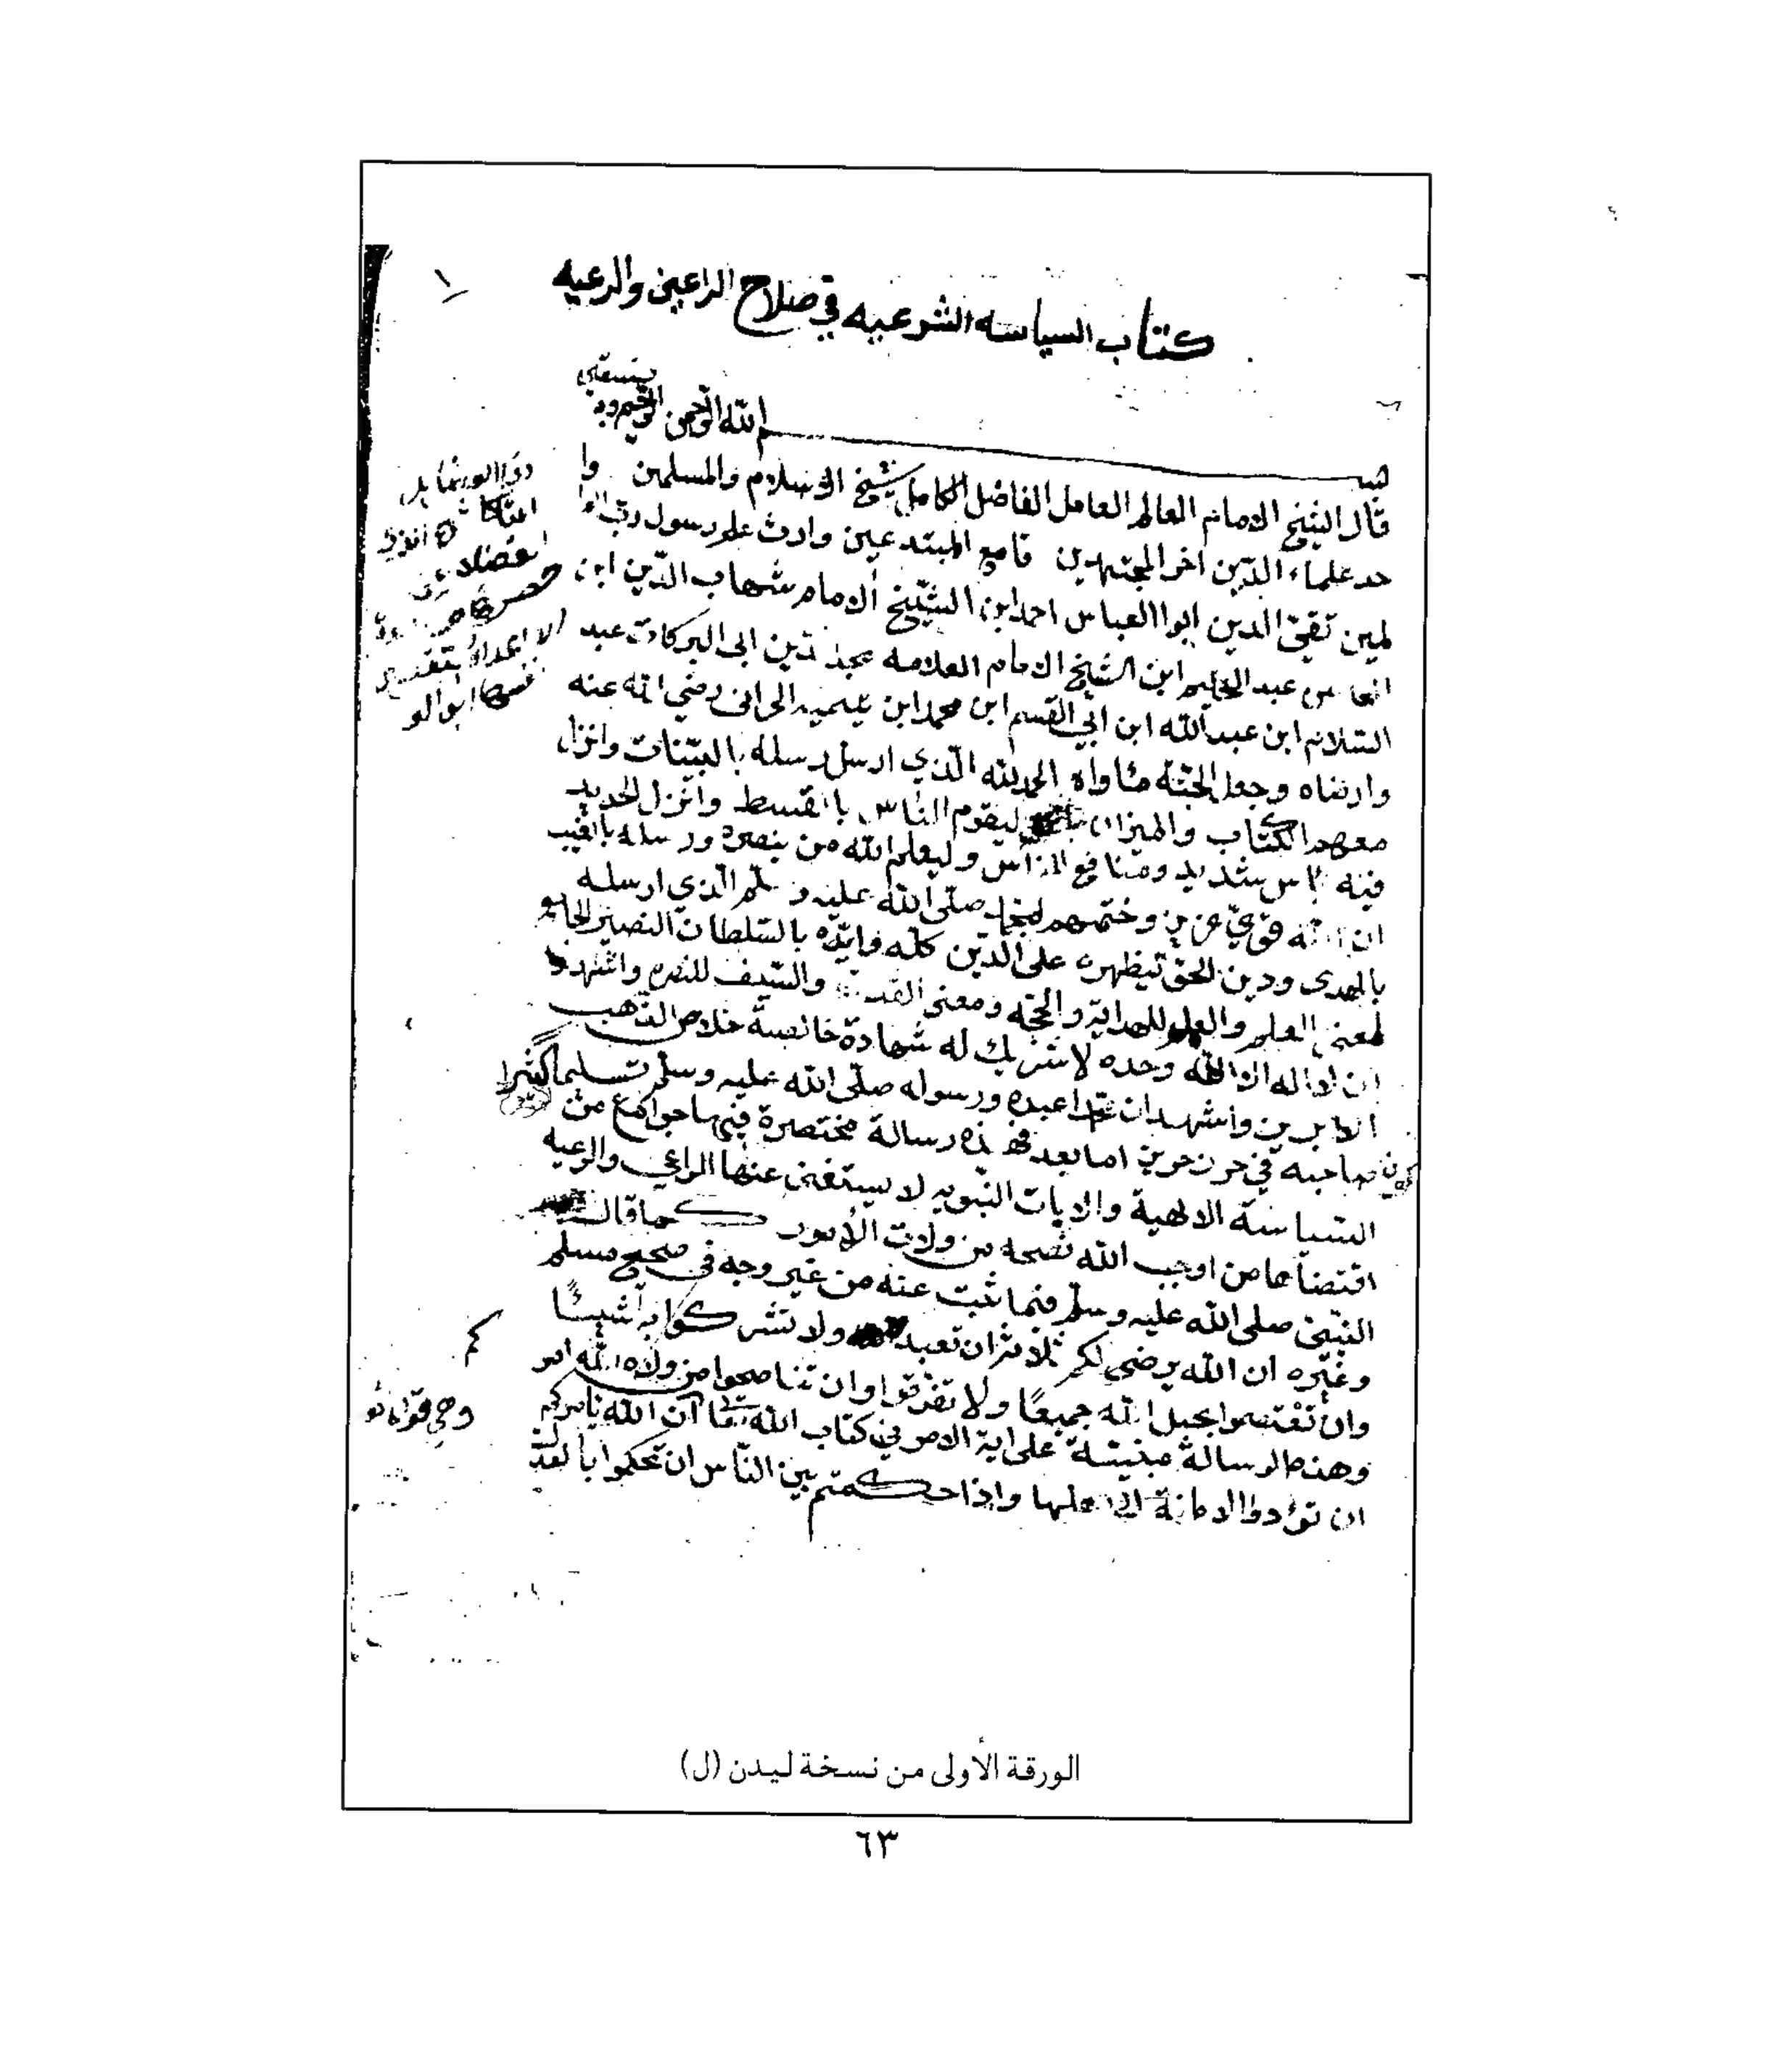 كتاب السياسه الشرعيه في صلاح الراعي والرعيه
بسم الله الرحمن الرحيم وبه نستعين
قال الشيخ الامام العالم العامل الفاضل الكامل شيخ الاسلام والمسلمين وا
حد علماء الدين اخر المجتهدين قامع المبتدعين وارث علم رسول رب العا
لمين تقي الدين ابوا العباس احمد ابن الشيخ الامام شهاب الدين ابن
عبد الحليم ابن الشيخ الامام العلامه مجد الدين ابى البركات عبد
السلام ابن عبد الله ابن ابي القسم ابن محمد ابن تيميه الحرانى رضي الله عنه
وارضاه وجعل الجنة مئاواه الحمد لله الذي ارسل رسله بالبينات وانزل
معهم الكتاب والميزان ليقوم الناس بالقسط وانزل الحديد
فيه باس شديد ومنافع للناس وليعلم الله من ينصره ورسله بالغيب
ان الله قوي عزيز وختمهم بمحمد صلى الله عليه وسلم الذي ارسله
بالهدى ودين الحق ليظهره على الدين كله وايده بالسلطان النصير الجامع
لمعنى العلم والقلم للهداية والحجه ومعنى القدرة والسيف للنصره واشهد
ان لا اله الا الله وحده لا شريك له شهادة خالصة خلاص الذهب
الابريز واشهد ان محمدا عبده ورسوله صلى الله عليه وسلم تسليما كثيرا
صاحبه في حرز حريز اما بعد فهذه رسالة مختصرة فيها جوامع من
السياسة الالهية والايات النبويه لا يستغنى عنها الراعي والرعيه
اقتضاها من اوجب الله نصحه من ولات الأمور كما قال
النبي صلى الله عليه وسلم فيما ثبت عنه من غير وجه في صحيح مسلم
وغيره ان الله يرضى لكم ثلاث ان تعبدوه ولا تشركوا به شيئًا
وان تعتصموا بحبل الله جميعًا ولا تفرقوا وان تناصحوا من ولاه الله امر
كم
وهذه الرسالة مبنيتة على اية الامر في كتاب الله ان الله يامركم
ان تؤدوا الامانة الى اهلها واذا حكمتم بين الناس ان تحكموا بالعد
الورقة الأولى من نسخة ليدن (ل)
٦٣